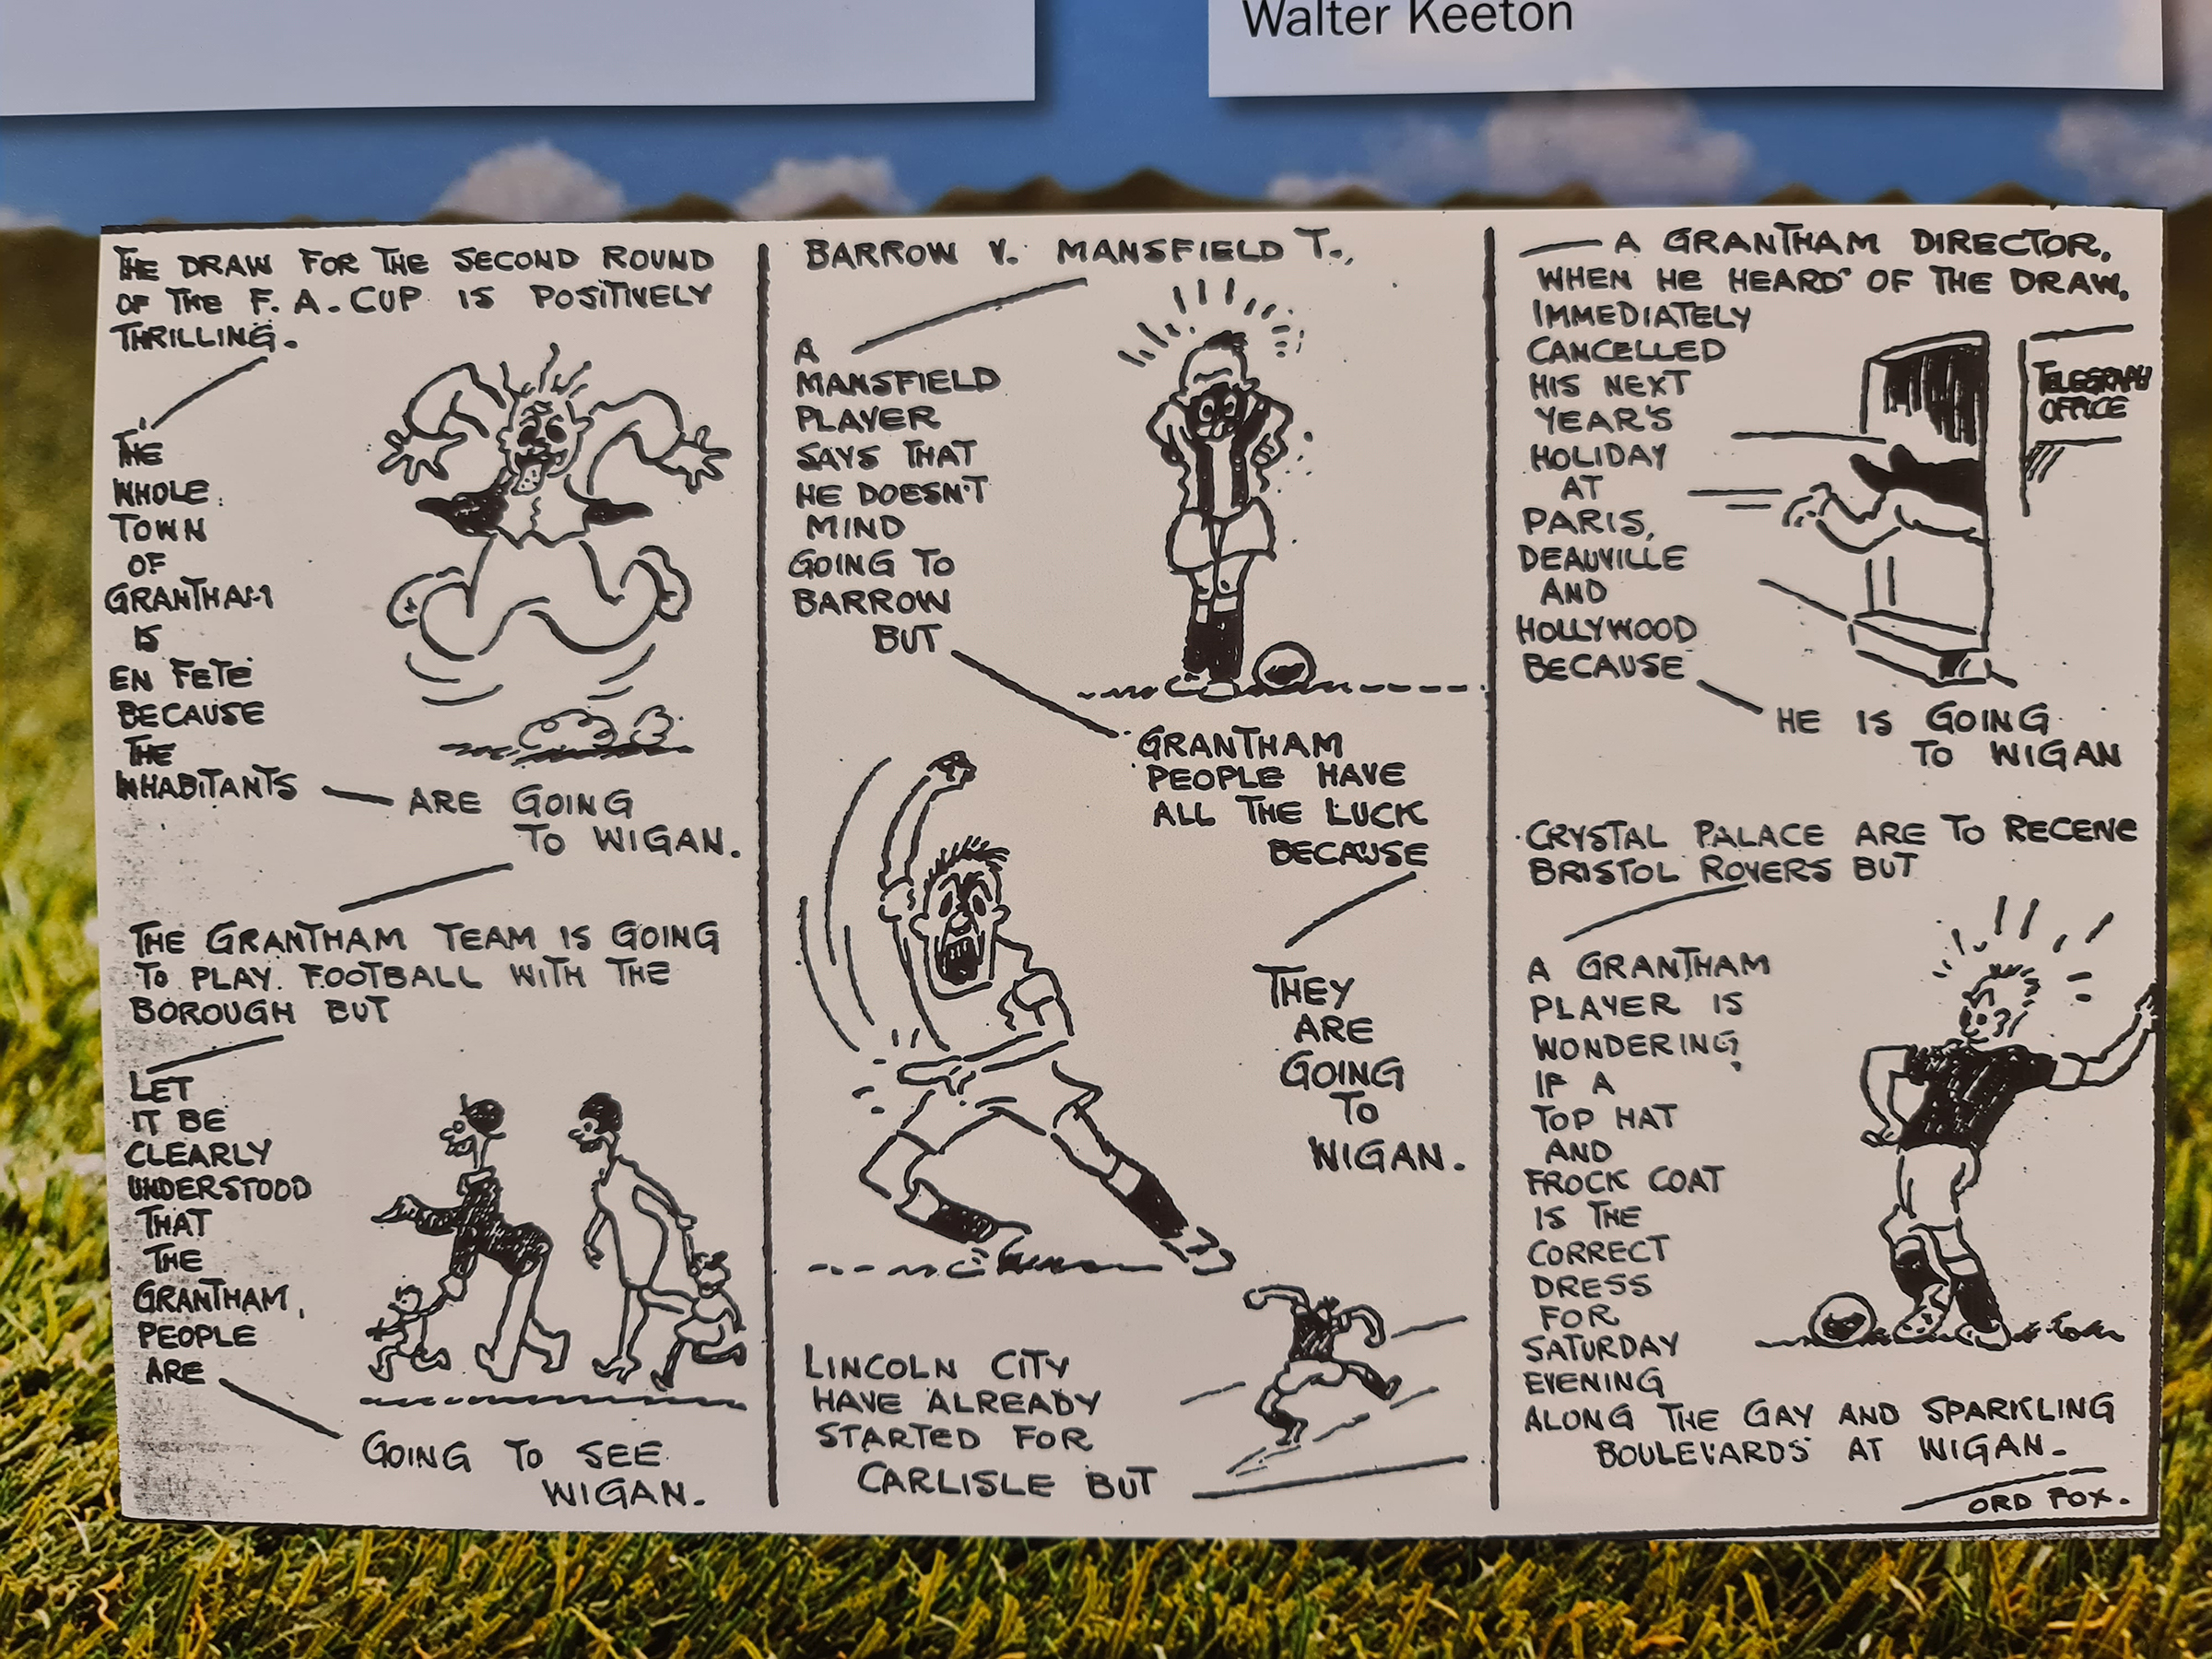 Walter Keeton
THE DRAW FOR THE SECOND ROUND
OF THE F. A. CUP IS POSITIVELY
THRILLING.
THE
WHOLE
TOWN
OF
GRANTHAM
IS
EN FETE
BECAUSE
THE
INHABITANTS
ARE GOING
TO WIGAN.
THE GRANTHAM TEAM IS GOING
TO PLAY FOOTBALL WITH THE
BOROUGH BUT
LET
IT BE
CLEARLY
UNDERSTOOD
THAT
THE
GRANTHAM,
PEOPLE
ARE
GOING TO SEE
WIGAN.
BARROW V. MANSFIELD T.,
A
MANSFIELD
PLAYER
SAYS THAT
HE DOESN'T
MIND
GOING TO
BARROW
BUT
GRANTHAM
PEOPLE HAVE
ALL THE LUCK
BECAUSE
THEY
ARE
GOING
TO
WIGAN.
LINCOLN CITY
HAVE ALREADY
STARTED FOR
CARLISLE BUT
A GRANTHAM DIRECTOR,
WHEN HE HEARD OF THE DRAW,
IMMEDIATELY
CANCELLED
HIS NEXT
YEAR'S
HOLIDAY
AT
PARIS,
DEAUVILLE
AND
HOLLYWOOD
BECAUSE
TELEGRAPH
OFFICE
HE IS GOING
TO WIGAN
CRYSTAL PALACE ARE TO RECEIVE
BRISTOL ROVERS BUT
A GRANTHAM
PLAYER IS
WONDERING
IF A
TOP HAT
AND
FROCK COAT
IS THE
CORRECT
DRESS
FOR
SATURDAY
EVENING
ALONG THE GAY AND SPARKLING
BOULEVARDS AT WIGAN.
ORD FOX.